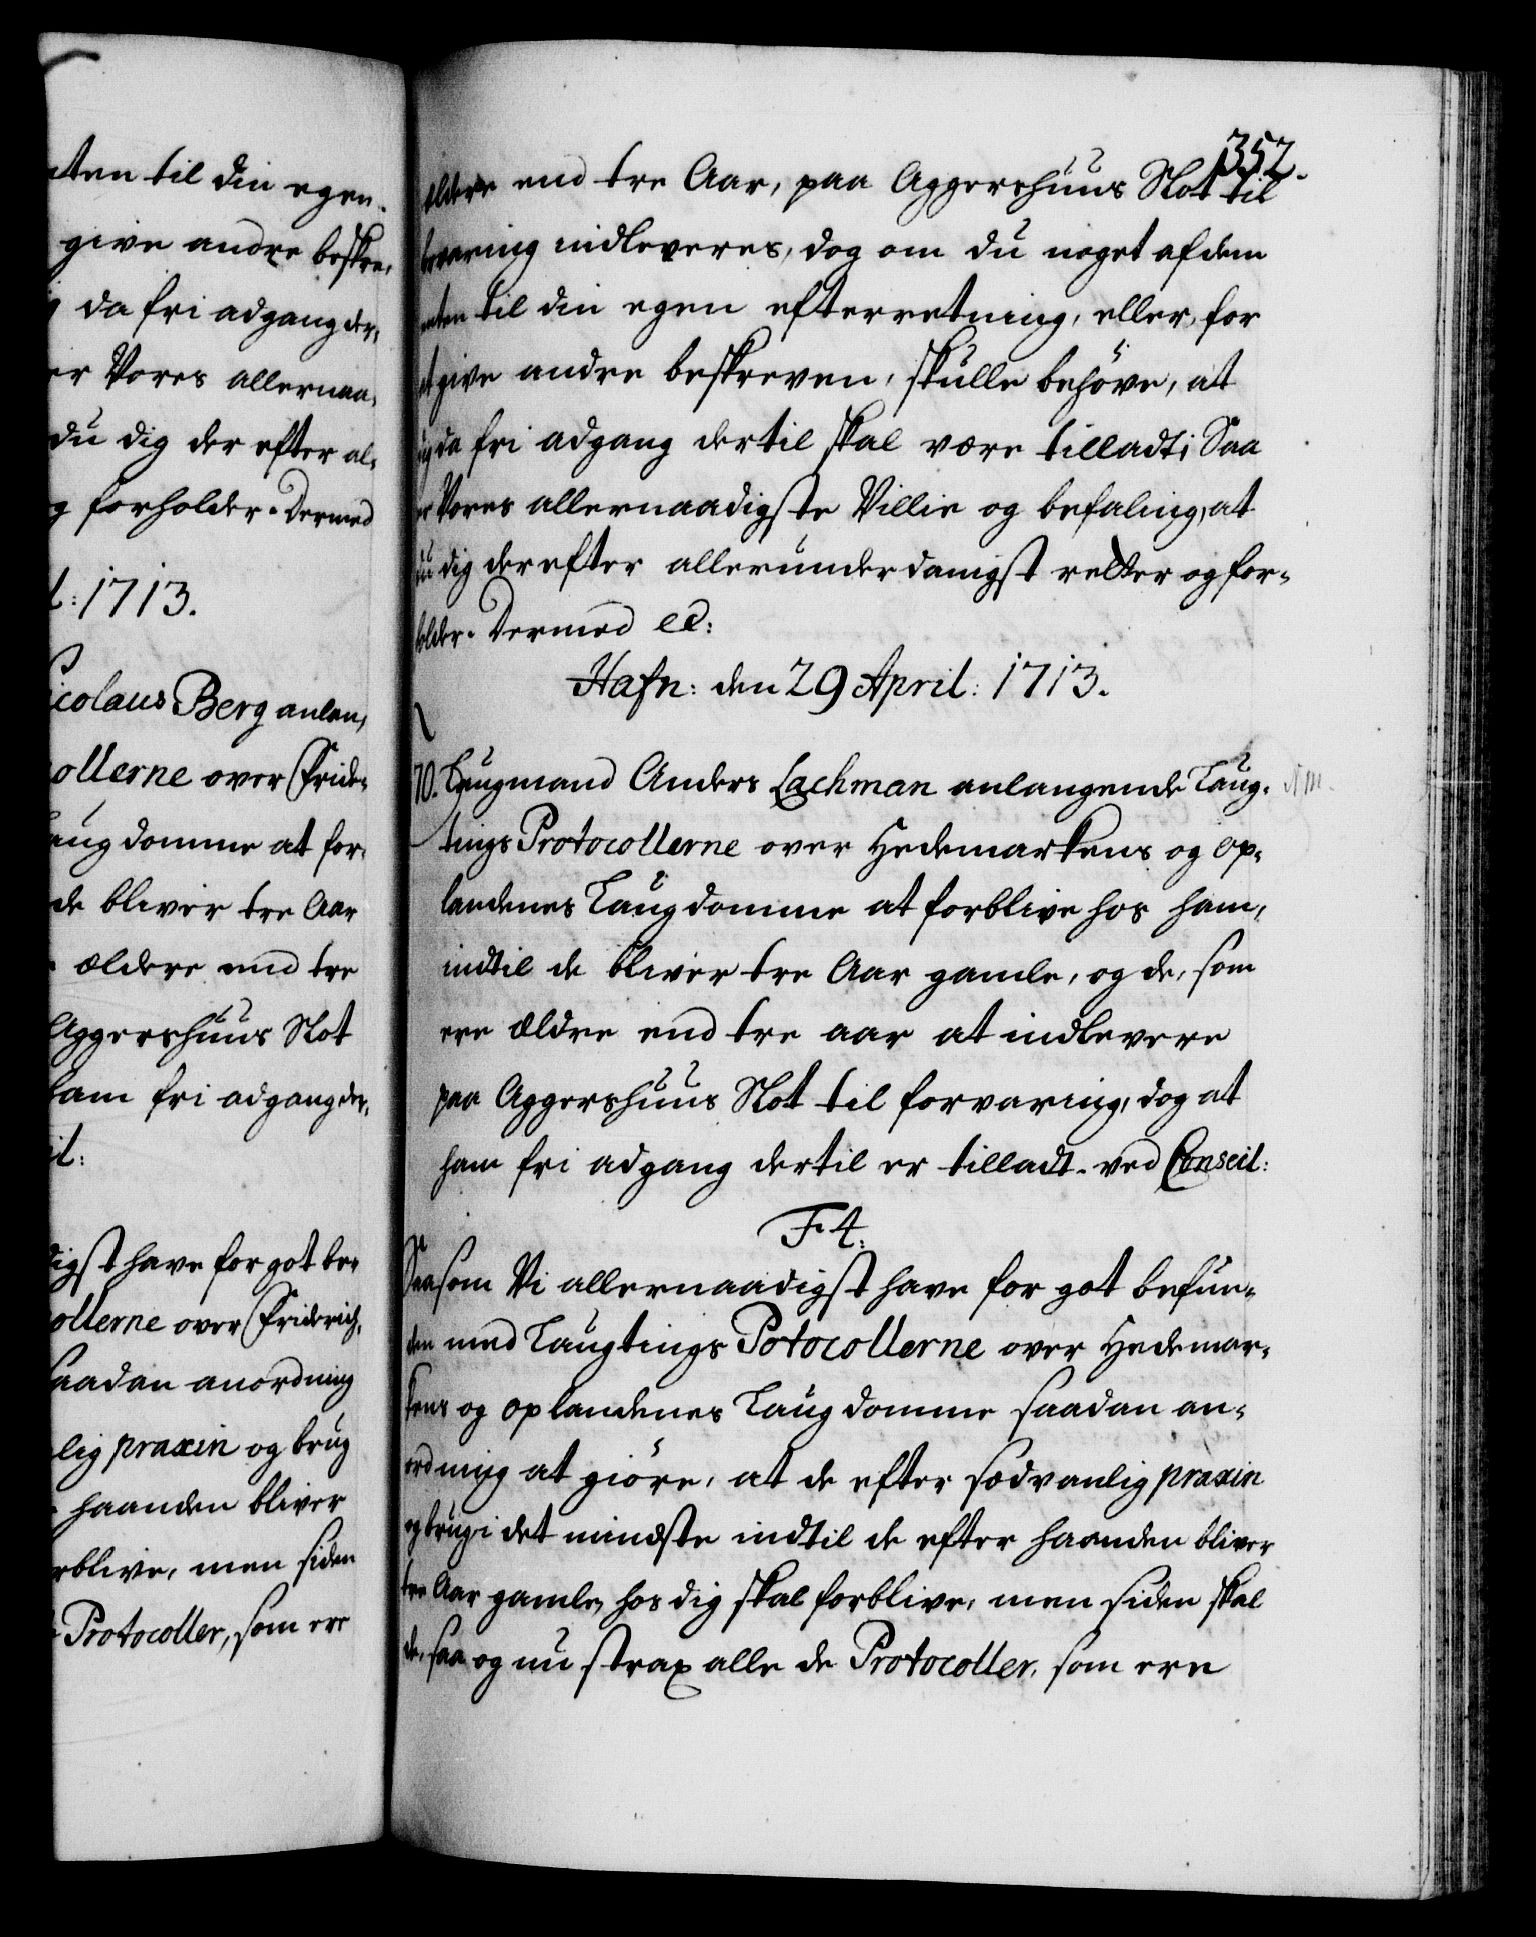 nten til din egen
give andre beskre,
da fri adgang der,
er Vores allernaa,
du dig der efter al,
g forholder. Dermed
l: 1713.
icolaus Berg anlan,
ollerne over Fride,
aug domme at for,
de bliver tre Aar
ældere end tre
Aggershuus Slot
ham fri adgang der,
il:
digst have for got be,
ollerne over Friderich,
saadan anordning
lig praxin og brug
haanden bliver
rblive, men siden
Protocoller, som ere
352.
eldere end tre Aar, paa Aggershuus Slot til
bevaring indleveres, dog om du noget af dem
enten til din egen efterretning, eller, for
at give andre beskreven, skulle behöve, at
dig da fri adgang dertil skal være tilladt; Saa
er Vores allernaadigste Villie og befaling, at
du dig derefter allerunderdanigst retter og for,
holder. Dermed ec:
Hafn: den 29 April: 1713.
70. Laugmand Anders Lachman anlangende Laug,
tings Protocollerne over Hedemarkens og Op,
landenes Laugdomme at forblive hos ham,
indtil de bliver tre Aar gamle, og de, som
ere ældre end tre aar at indlevere
paa Aggershuus Slot til forvaring, dog at
ham fri adgang dertil er tilladt. ved Conseil:
F 4.
Saasom Vi allernaadigst have for got befun,
den med Laugtings Potocollerne over Hedemar,
kens og Oplandenes Laugdomme saadan an,
ordning at giöre, at de efter sædvanlig praxin
og brug i det mindste indtil de efter haanden bliver
tre Aar gamle, hos dig skal forblive, men siden skal
de, saa og nu strax alle de Protocoller, som ere